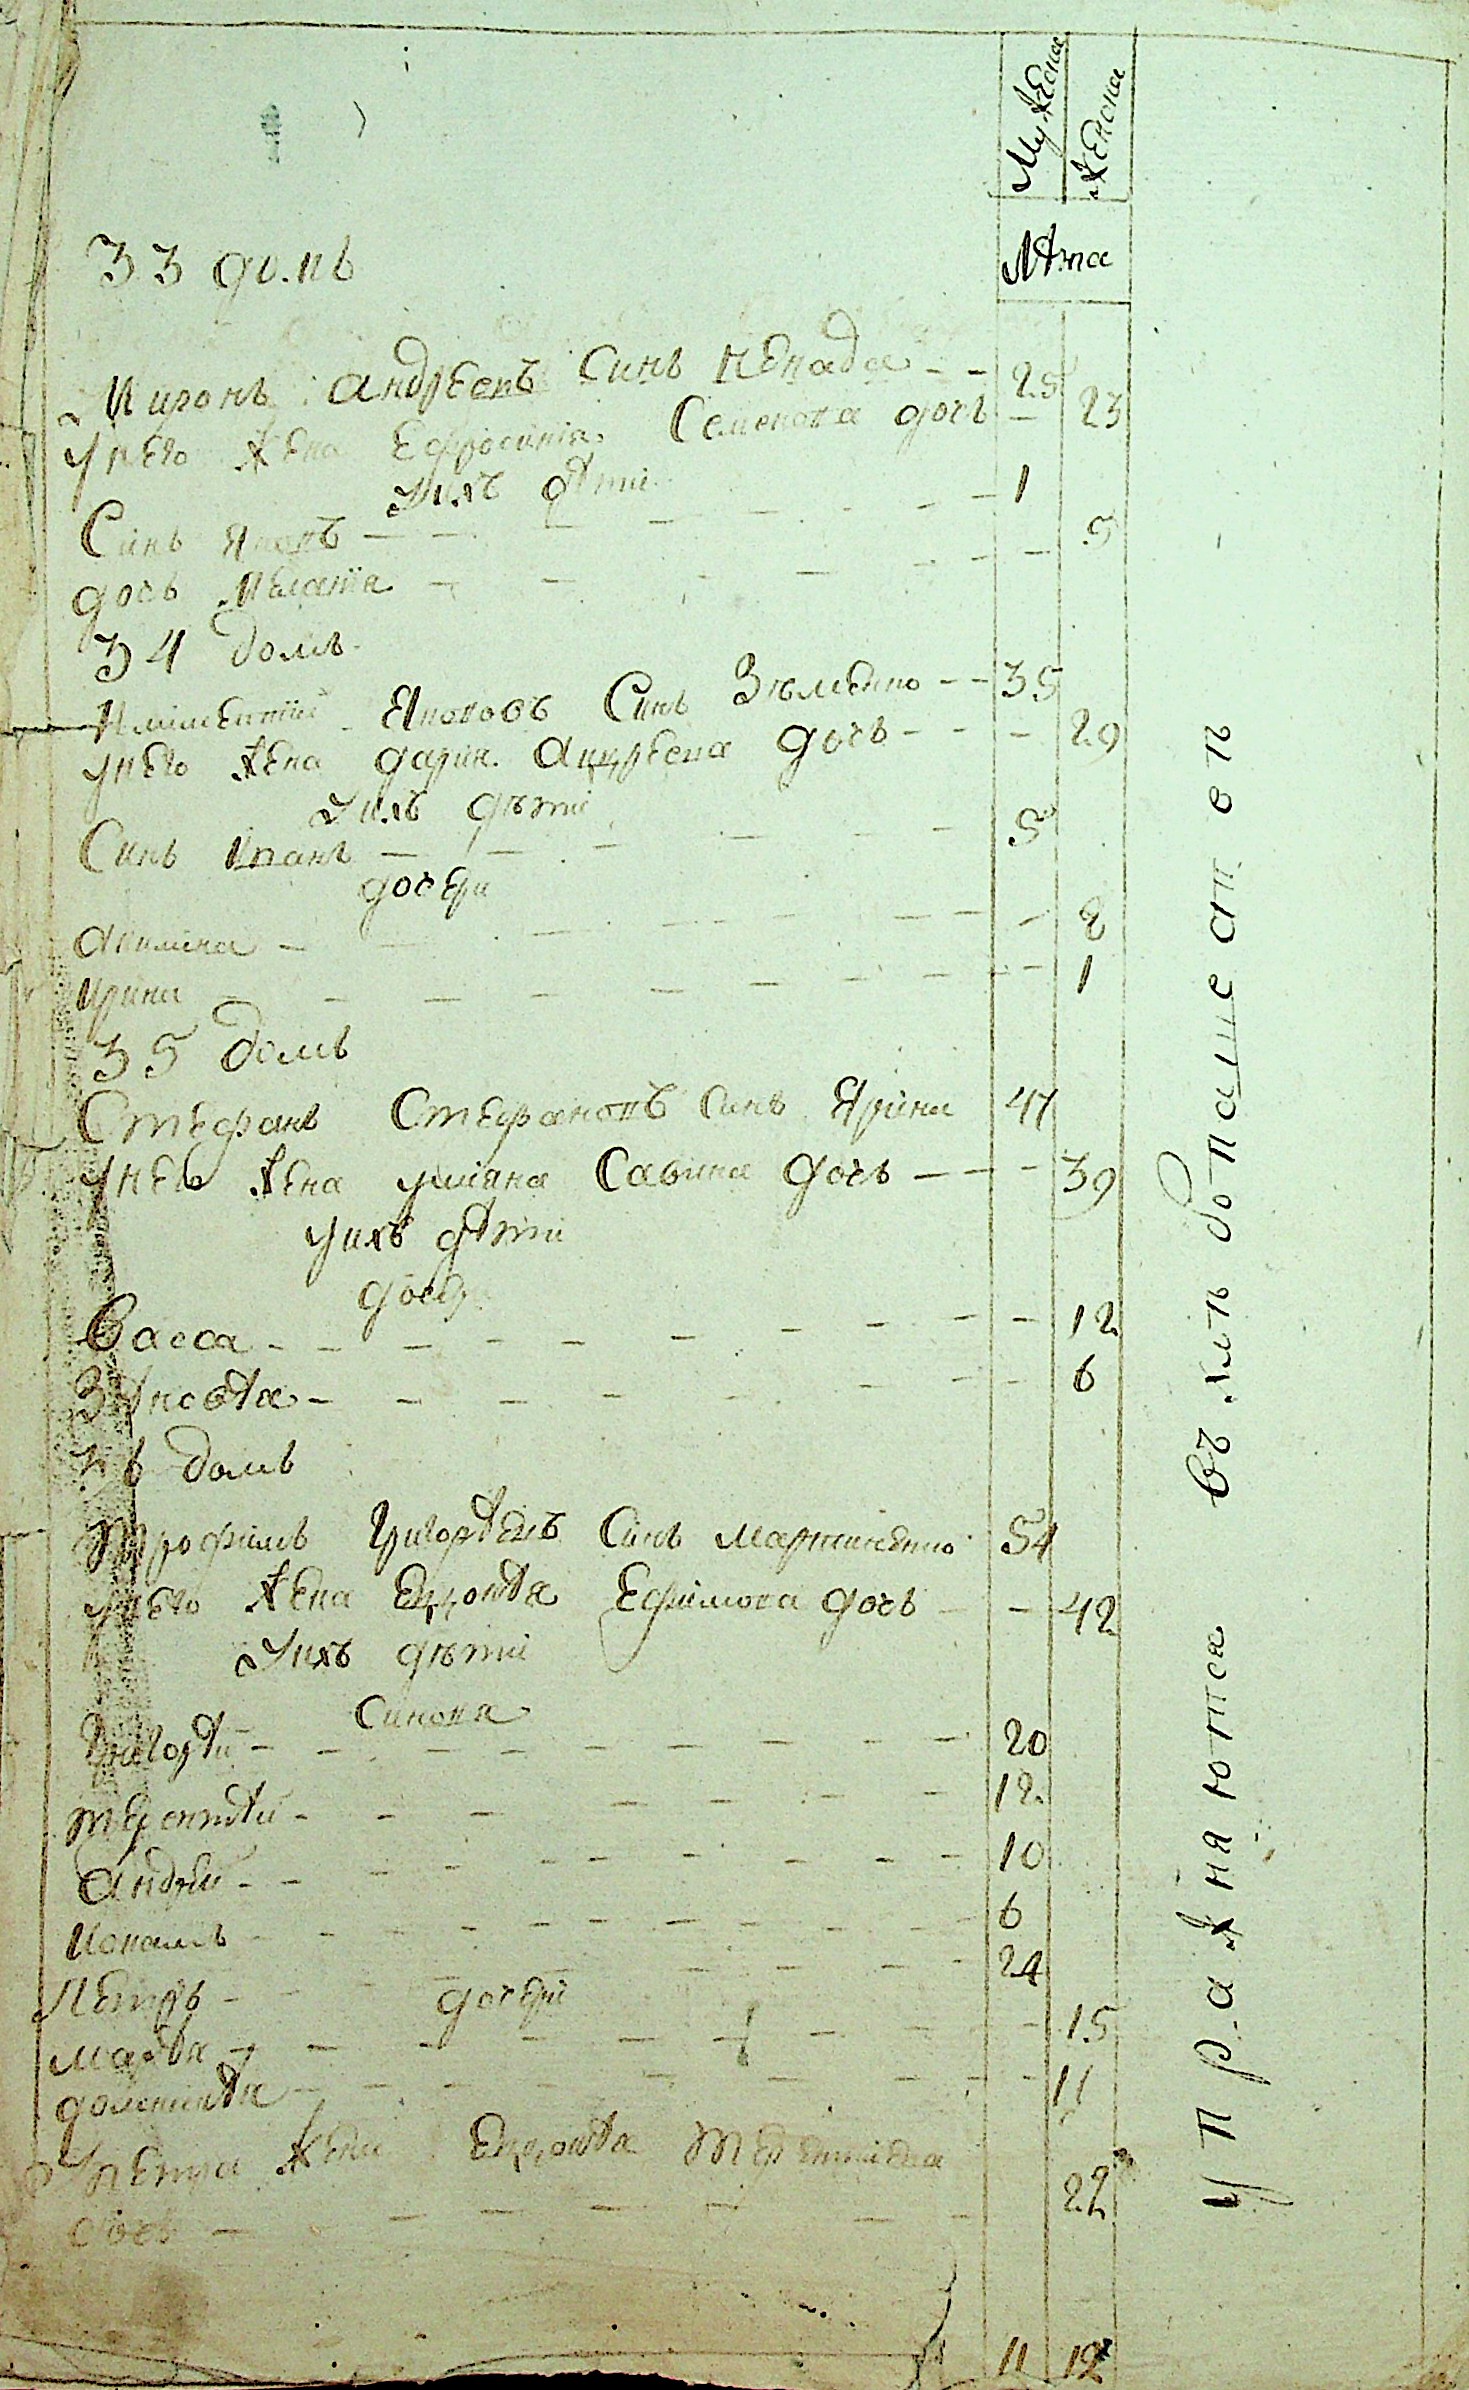 Мужеска
Женска
Лѣта
33 домъ
Миронъ Андреевъ Синъ Ненада 25
унего жена Ефросиния Семенова дочь 23
уних дѣти
Синъ Яковъ 1
дочь Меланїя 5
34 домъ
Климентїй Яковов Синъ 35
унего жена дария Андреева дочь 29
уних дѣти
Синъ Иванъ 5
дочери
Акилина 2
Ирина 1
35 домъ
Стефанъ Стефановъ синъ Ярина 47
унего жена улияна Савина дочь 39
унихъ дѣти
дочери
Васса 12
Зѣновѣя 6
36 домъ
Трофимъ Григорѣевъ Синъ Мартиненко 54
унего жена Евдокѣя Ефимова дочь 42
унихъ дѣти
Синовя
Григорѣй 20
Терентѣй 12
Андрей 10
6
Петръ 24
дочери
Марѣя 15
доминикѣя 11
упетра жена Евдокѣя Терентиева
дочь 22
11 12
упражняются въ хлѣбопашествѣ